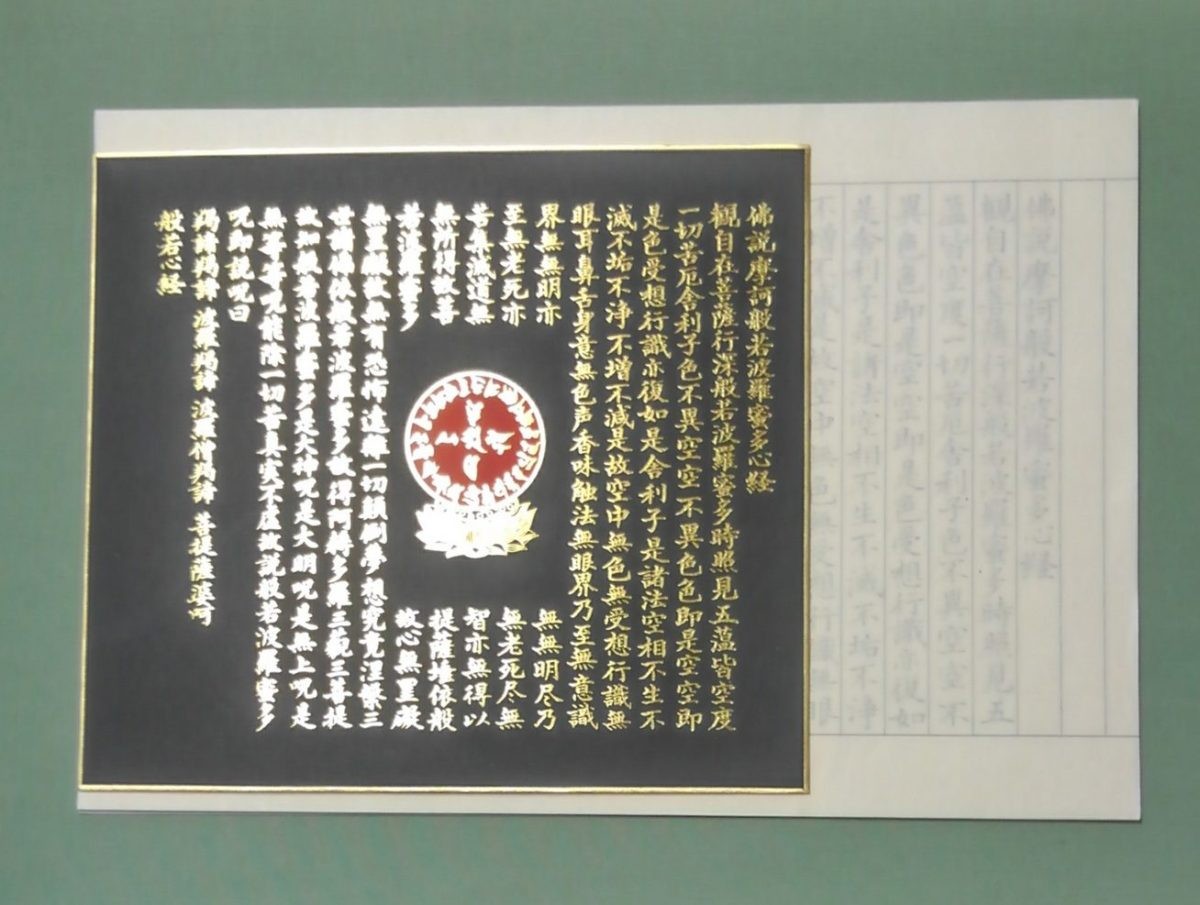 佛説摩訶般若波羅蜜多心経
観自在菩薩行深般若波羅蜜多時照見五
蘊皆空度一切苦厄舎利子色不異空空不
異色色即是空空即是色受想行識亦復如
是舎利子是諸法空相不生不滅不垢不浄
不増不減是故空中無色無受想行識無眼
佛説摩訶般若波羅蜜多心経
観自在菩薩行深般若波羅蜜多時照見五蘊皆空度
一切苦厄舎利子色不異空空不異色色即是空空即
是色受想行識亦復如是舎利子是諸法空相不生不
滅不垢不浄不増不減是故空中無色無受想行識無
眼耳鼻舌身意無色声香味触法無眼界乃至無意識
界無無明亦 無無明尽乃
至無老死亦 無老死尽無
苦集滅道無 智亦無得以
無所得故菩 提薩埵依般
若波羅蜜多 故心無罣礙
無罣礙故無有恐怖遠離一切顛倒夢想究竟涅槃三
世諸佛依般若波羅蜜多故得阿耨多羅三藐三菩提
故知般若波羅蜜多是大神呪是大明呪是無上呪是
無等等呪能除一切苦真実不虚故説般若波羅蜜多
呪即説呪曰
羯諦羯諦 波羅羯諦 波羅僧羯諦 菩提薩婆訶
般若心経